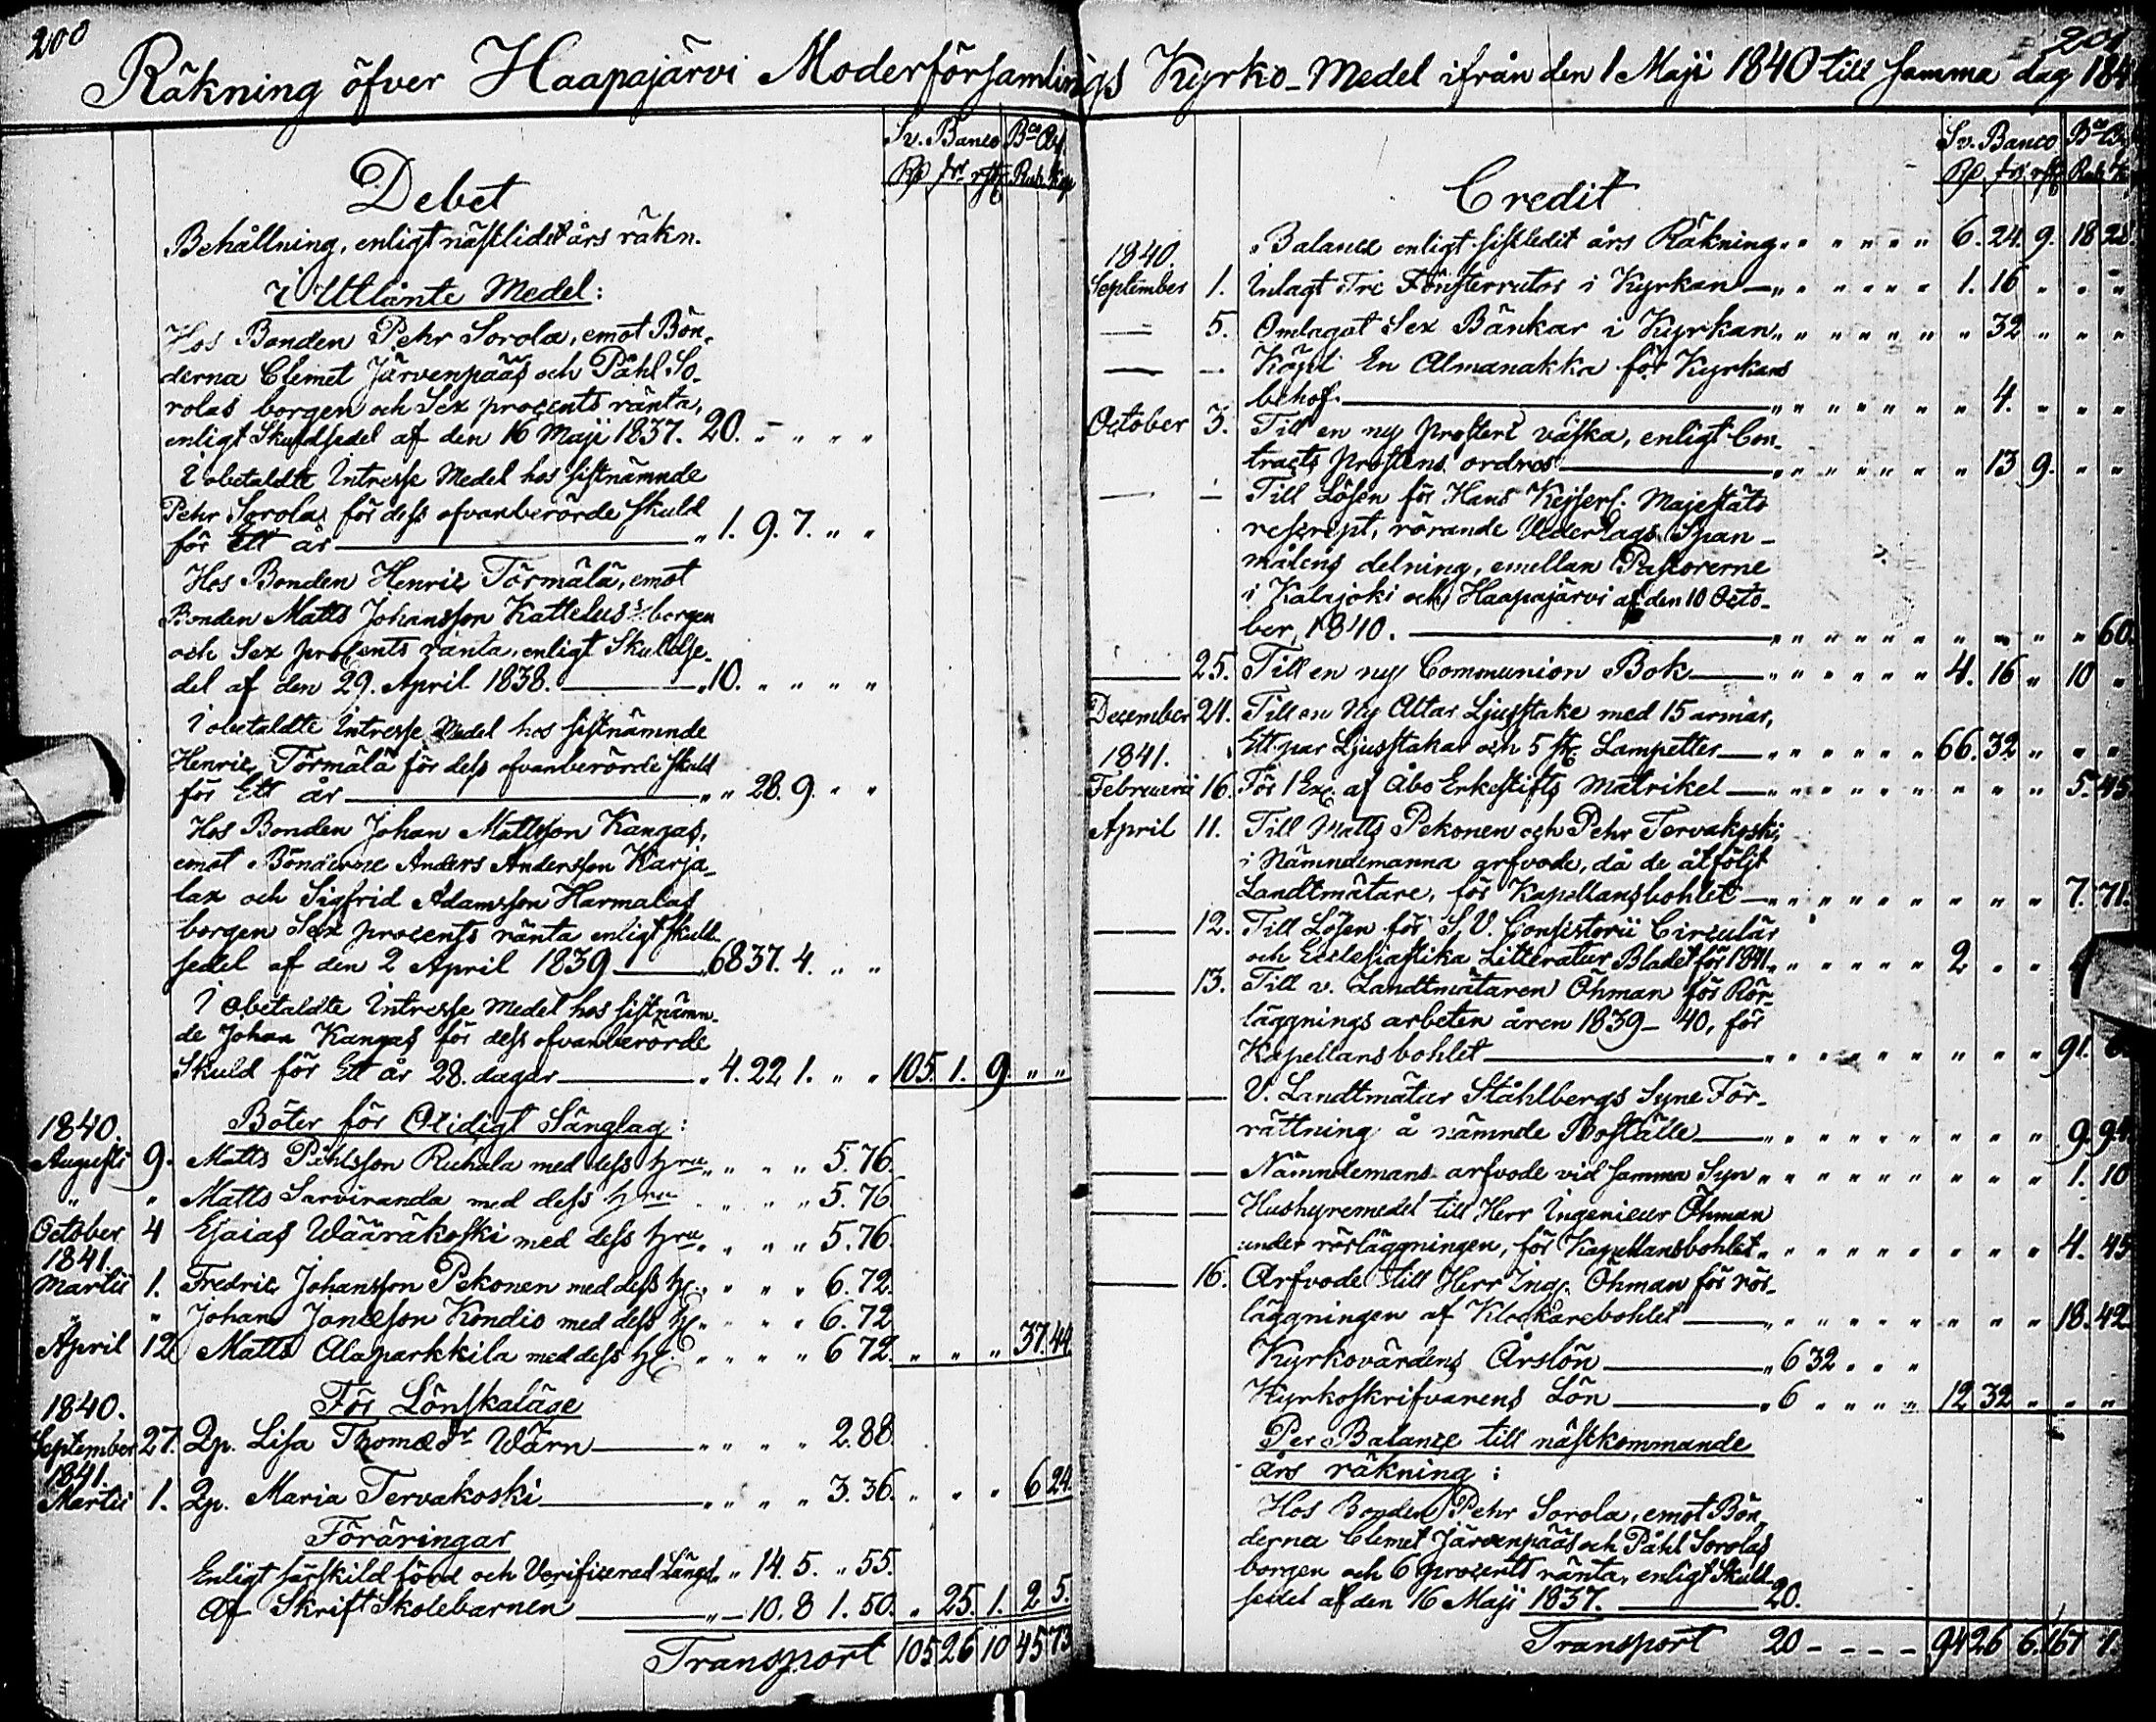 200
Räkning öfver Haapajärvi Moderförsamlings Kyrko-Medel ifrån den 1 Maji 1840 till samma dag 184
Sv. Banco Bco Ass.
Debet
Behållning, enligt nästlidet års räkn.
i Utlånte Medel:
Hos Bonden Pehr Sorola, emot Bön-
derna Clemet Järvenpääs och Påhl So-
rolas borgen och Sex procents ränta,
enligt Skuldsedel af den 16 Maji 1837. 20. " " " "
i obetaldte Intresse Medel hos sistnämnde
Pehr Sorola för dess ofvanberörde skuld
för Ett år " 1. 9. 7. " "
Hos Bonden Henric Törmälä, emot
Bonden Matts Johansson Kattelus's borgen
och Sex procents ränta, enligt Skuldse-
del af den 29. April 1838. 10. " " " "
i obetaldte Intresse Medel hos sistnämnde
Henric Törmälä för dess ofvanberörde skuld
för Ett år " " 28. 9. " "
Hos Bonden Johan Mattsson Kangas,
emot Bönderne Anders Andersson Karja-
lax och Sigfrid Adamsson Harmalas
borgen Sex procents ränta enligt skuld-
sedel af den 2 April 1839 68 37. 4. " "
i obetaldte Intresse Medel hos sistnämn-
de Johan Kangas för dess ofvanberörde
Skuld för Ett år 28. dagar " 4. 22 1. " " 105. 1. 9. " "
Böter för Otidigt Sänglag:
1840.
Augusti 9. Matts Påhlsson Ruhala med dess hru " " " " 5. 76.
" " Matts Sarviranda med dess hru " " " " 5. 76
October 4 Esaias Wääräkoski med dess hru " " " " 5. 76.
1841.
Martii 1. Fredric Johansson Pekonen med dess h. " " " " 6. 72.
" " Johan Jonesson Kondio med dess h. " " " " 6. 72
April 12 Matts Alaparkkila med dess h. " " " " 6 72. " " " 37. 44.
För Lönskaläge
1840.
September 27. Qp. Lisa Thomædr Wärn " " " " 2. 88.
1841.
Martii 1. Qp. Maria Tervakoski " " " " 3. 36. " " " 6 24.
Föräringar
Enligt särskild förd och Verificerad Längd " " 14. 5. " 55.
Af Skrift Skolebarnen " 10. 8 1. 50. " 25. 1. 2 5.
Transport 105 26 10 45 73
201
Sv. Banco
Credit
Balance enligt sistledit års Räkning " " " " " " 6. 24. 9. 18 28.
1840.
September 1. Inlagt Tre Fönsterrutor i Kyrkan " " " " " " 1. 16 " " "
5. Omlagat Sex Bänkar i Kyrkan " " " " " " " 32 " " "
Köpt En Almanakka för Kyrkans
behof " " " " " " " 4. " " "
October 3. Till en ny Prosteri väska, enligt Con-
tracts Prostens ordres " " " " " " " 13 9. " "
Till Lösen för Hans Kejserl. Majestäts
rescript, rörande Vederlags Span-
målens delning, emellan Pastorerne
i Kalajoki och Haapajärvi af den 10 Octo-
ber, 1840. " " " " " " " " " " 60.
25. Till en ny Communion Bok " " " " " " 4. 16 " 10 "
December 24. Till en Ny Altar Ljusstake med 15 armar,
1841. Ett par Ljusstakar och 5 st. Lampetter " " " " " " 66. 32 " " "
Februarii 16. För 1 Ex. af Åbo Erkestifts Matrikel " " " " " " " " " 5. 45
April 11. Till Matts Pekonen och Pehr Tervakoski,
i Nämndemanna arfvode, då de åtföljt
Landtmätare, för Kapellansbohlet " " " " " " " " " 7. 71.
12. Till Lösen för S. V. Consistorii Circulär
och Ecclesiastika Litteratur Bladet för 1841 " " " " " " 2 " "
13. Till v. Landtmätaren Öhman för Rör-
läggnings arbeten åren 1839-40, för
Kapellansbohlet " " " " " " " " " 91.
V. Landtmätar Ståhlbergs Syne För-
rättning å nämnde Boställe " " " " " " " " " 9. 94.
Nämndemans arfvode vid samma Syn " " " " " " " " " 1. 10
Hushyremedel till Herr Ingenieur Öhman
under rörläggningen, för Kapellansbohlet " " " " " " " " " 4. 45
16. Arfvode till Herr Ing. Öhman för rör-
läggningen af Klockarebohlet " " " " " " " " " 18. 42
Kyrkovärdens Årslön " 6 32 " " "
Kyrkoskrifvarens Lön " 6 " " " " 12 32 " " "
Per Balance till nästkommande
års räkning:
Hos Bonden Pehr Sorola, emot Bön-
derna Clemet Järvenpääs och Påhl Sorolas
borgen och 6 procents ränta, enligt Skuld-
sedel af den 16 Maji 1837. 20.
Transport 20 - - - - 94 26 6. 167 1.